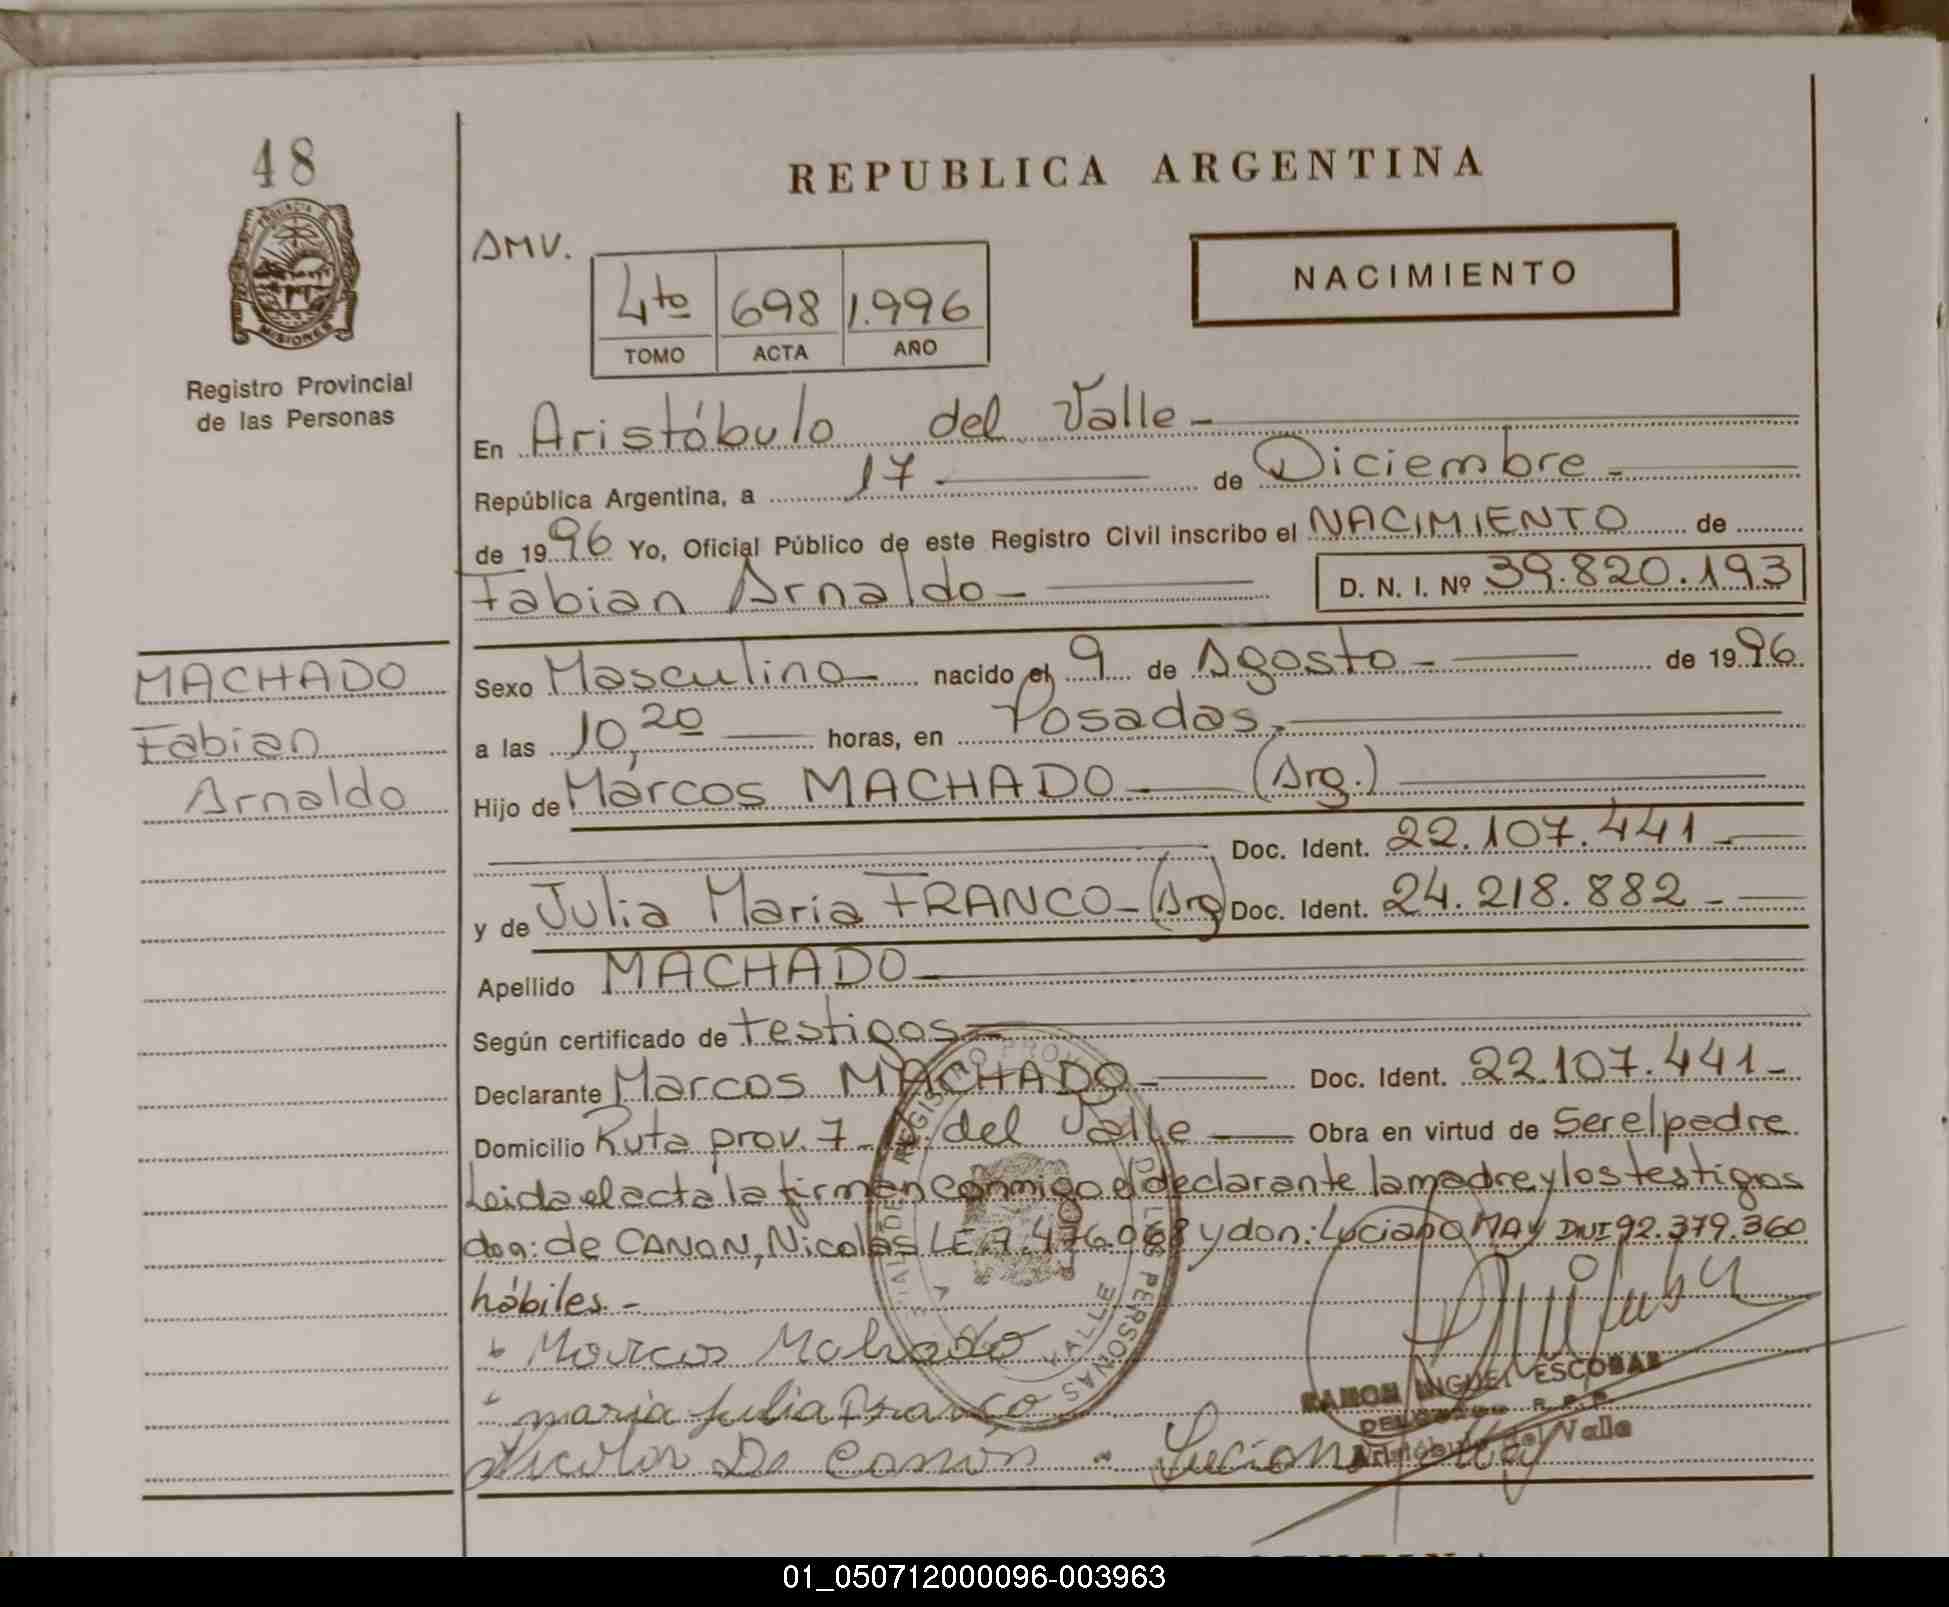 48
PROVINCIA DE
MISIONES
Registro Provincial
de las Personas
MACHADO
Fabian
Arnaldo
REPUBLICA ARGENTINA
AMV.
4to 698 1.996
TOMO ACTA AÑO
NACIMIENTO
En Aristóbulo del Valle -
República Argentina, a 17 de Diciembre -
de 1996 Yo, Oficial Público de este Registro Civil inscribo el NACIMIENTO de
Fabian Arnaldo - D. N. I. Nº 39.820.193
Sexo Masculino nacido el 9 de Agosto - de 1996.
a las 10,20 horas, en Posadas,
Hijo de Marcos MACHADO - (Arg.)
Doc. Ident. 22.107.441 -
y de Julia Maria FRANCO - (Arg) Doc. Ident. 24.218.882 -
Apellido MACHADO
Según certificado de testigos -
Declarante Marcos MACHADO - Doc. Ident. 22.107.441 -
Domicilio Ruta prov. 7 - A. del Valle Obra en virtud de ser el padre
Leida el acta la firman conmigo el declarante la madre y los testigos
don: de CANON, Nicolás LE.7.476.068 y don: Luciano MAY DNI 92.379.360
hábiles. -
Marcos Machado
maria Julia Franco
Nicolas De Canon - Luciano May
RAMON MIGUEL ESCOBAR
DELEGADO R. P. P.
Aristóbulo del Valle
01_050712000096-003963